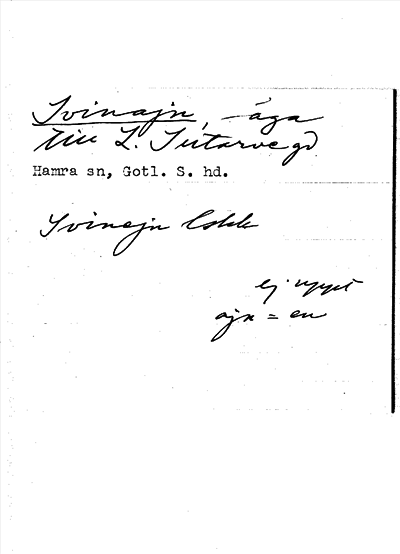 Svinajn, -äga
till L. Sutarve gd
Hamra sn, Gotl. S. hd.
Svinajn
ej uppt
ajn = en